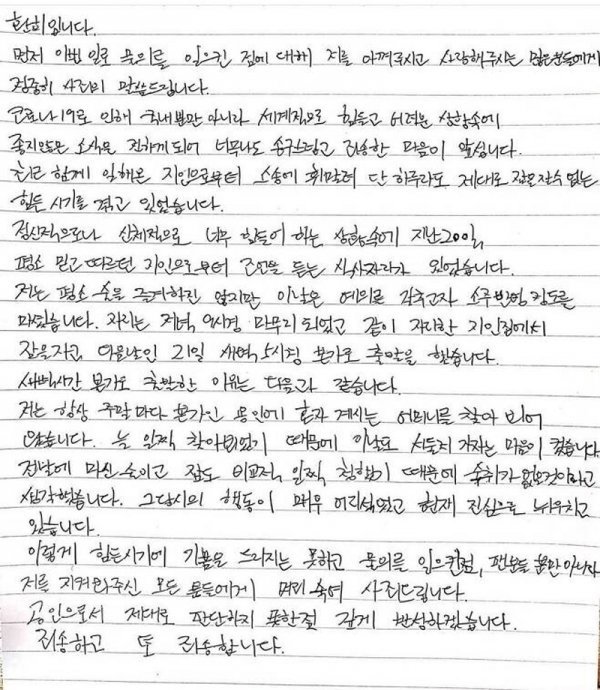 환희입니다.
먼저 이번 일로 물의를 일으킨 점에 대해 저를 아껴주시고 사랑해주시는 많은분들에게
정중히 사과의 말씀드립니다.
코로나19로 인해 국내뿐만 아니라 세계적으로 힘들고 어려운 상황속에
좋지않은 소식을 전하게 되어 너무나도 송구스럽고 죄송한 마음이 앞섭니다.
최근 함께 일해온 지인으로부터 소송에 휘말려 단 하루라도 제대로 잠을잘수 없는
힘든 시기를 겪고 있었습니다.
정신적으로나 신체적으로 너무 힘들어 하는 상황속에 지난 20일,
평소 믿고 따르던 지인으로부터 조언을 듣는 식사자리가 있었습니다.
저는 평소 술을 즐겨하진 않지만 이날은 예의를 갖추고자 소주 반병 정도를
마셨습니다. 자리는 저녁 9시경 마무리 되었고 같이 자리한 지인집에서
잠을자고, 다음날인 21일 새벽 5시경 본가로 출발을 했습니다.
새벽시간 본가로 출발한 이유는 다음과 같습니다.
저는 항상 주말마다 본가인 용인에 혼자 계시는 어머니를 찾아 뵈어
왔습니다. 늘 일찍 찾아뵈었기 때문에 이날도 서둘러 가자는 마음이 컸습니다.
전날에 마신 술이고 잠도 비교적 일찍 청했기 때문에 숙취가 없을것이라고
생각했습니다. 그당시의 행동이 매우 어리석었고 현재 진심으로 뉘우치고
있습니다.
이렇게 힘든시기에 기쁨을 드리지는 못하고 물의를 일으킨점, 팬분들 뿐만아니라
저를 지켜봐주신 모든 분들에게 머리 숙여 사죄드립니다.
공인으로서 제대로 판단하지 못한점 깊게 반성하겠습니다.
죄송하고 또 죄송합니다.